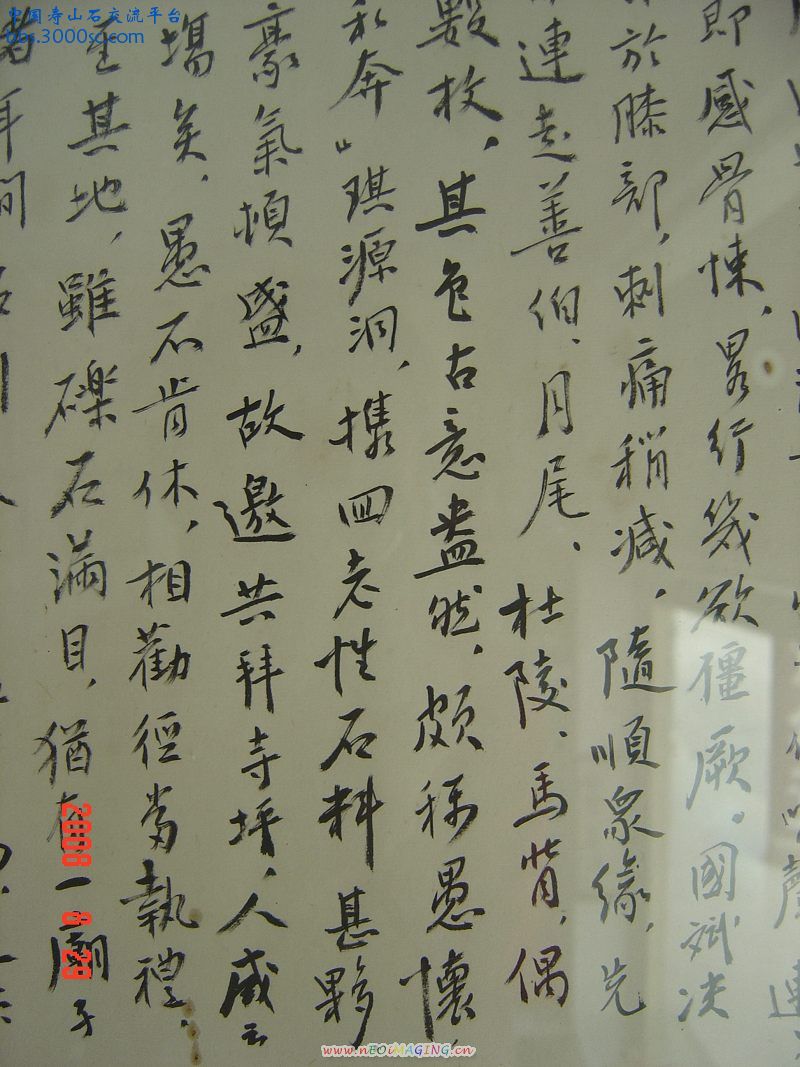 中国寿山石交流平台
聲,連
即感骨悚,畧行幾欲殭厥。國斌決
於膝部,刺痛稍減,隨順眾緣,先
連走善伯、月尾、杜陵、馬背,偶
數枚,其色古意盎然,頗稱愚懷,
私奔」琪源洞,攜四老性石料甚夥
豪氣頓盛,故邀共拜寺坪,人咸云
塲矣,愚不肯休,相勸徑當執禮,
至其地,雖礫石滿目,猶存一廟子
年間
2008
www.nEOiMAGiNG.cn